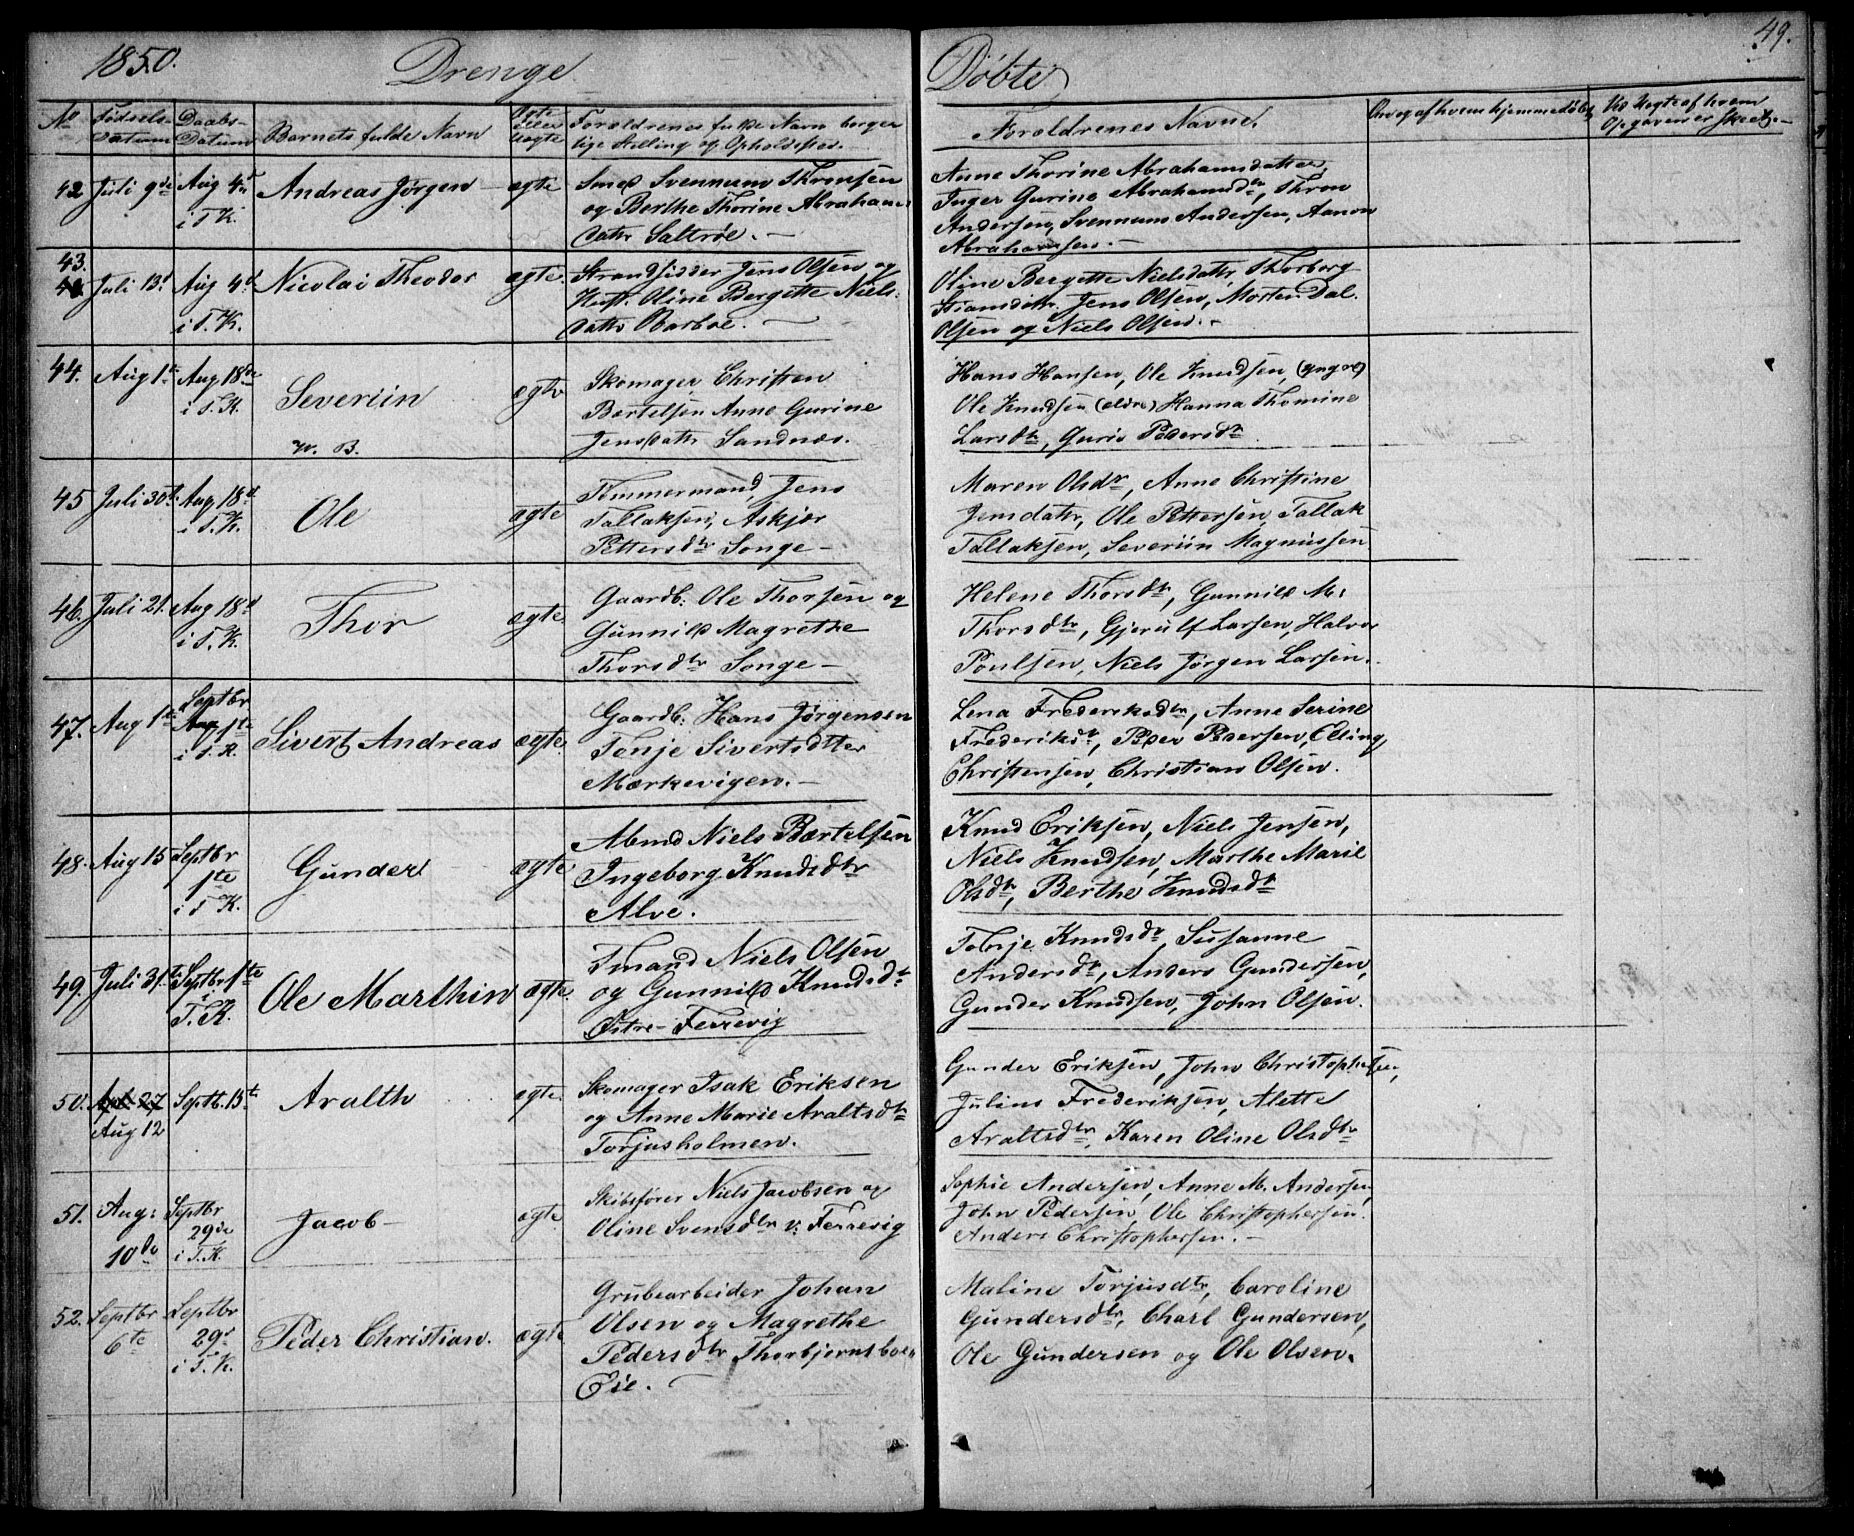 1850. Drenge Døbte 49.
No Fødsels- Datum Daabs- Datum Barnets fulde Navn Ægte eller Uægte Forældrenes fulde Navn borger lige Stilling og Opholdssted.
Forældrenes Navne. Om og af hvem hjemmedøbt Opgaven er skeet.
42 Juli 9de Aug 4d i T.K. Andreas Jørgen ægte Smed Svennum Thronsen
og Berthe Thorine Abrahams
datr Saltrøe.
Anne Thorine Abrahamsdatter,
Inger Gurine Abrahamsdtr, Thron
Andersen, Svennum Andersen, Aanon
Abrahamsen.
43. Juli 13d Aug 4d i T.K. Nicolai Theodor ægte. Strandsidder Jens Olsen og
Hustr. Oline Bergette Niels:
datr Barboe.
Oline Bergette Nielsdatr, Thorborg
Jens Olsen, Morten Dal.
Olsen og Niels Olsen.
44. Aug 1te Aug 18de i T.K. Severiin ægte Skomager Christen
Bertelsen Anne Gurine
Jensdatr Sandnæs.
N. B.
Hans Hansen, Ole Knudsen, (yngre)
Ole Knudsen (eldre) Hanna Thomine
Larsdtr, Guri Pedersdtr
45 Juli 30te Aug 18d i T.K. Ole ægte Tømmermand, Jens
Tallaksen, Askjær
Pettersdtr Songe
Maren Olsdr, Anne Christine
Jensdatr, Ole Pettersen, Tallak
Tallaksen, Severiin Magnussen
46. Juli 21. Aug 18d i T.K. Thor ægte Gaardb: Ole Thorsen og
Gunnild Magrethe
Thorsdtr Songe
Helene Thorsdtr, Gunnild M:
Thorsdtr, Gjerulf Larsen, Halvor
Poulsen, Niels Jørgen Larsen.
47. Aug 1te Septbr 1te i T.K. Sivert Andreas ægte. Gaardb: Hans Jørgensen
Tonje Sivertsdtter
Mærkevigen.
Lena Frederiksdtr, Anne Serine
Frederiksdtr, Peder Pedersen, Elling
Christensen, Christian Olsen.
48. Aug 15 Septbr 1te i T.K. Gunder ægte Niels Bærtelsen
Ingeborg Knudsdtr
Alve.
Knud Eriksen, Niels Jensen,
Niels Knudsen, Marthe Marie
Olsdtr, Berthe Knudsdtr
49. Juli 31te Septbr 1te i T.K. Ole Marthin ægte. Niels Olsen
og Gunnild Knudsdtr
Østre-Ferrevig
Tobje Knudsdr, Susanne
Andersdtr, Anders Gundersen,
Gunder Knudsen, John Olsen.
50. Aug 12 Septb. 15te Aralth ægte. Skomager Isak Eriksen
og Anne Marie Araltsdtr
Torjusholmen.
Gunder Eriksen, John Christophersen,
Julius Frederiksen, Alette
Araltsdtr, Karen Oline Olsdtr
51. Aug: 10de Septbr 29de i T.K. Jacob ægte. Skibsfører Niels Jacobsen og
Oline Svensdtr v: Ferrevig
Sophie Andersen, Anne M. Andersen,
John Pedersen, Ole Christophersen.
Anders Christophersen.
52. Septbr 6te Septbr 29d i T.K. Peder Christian. ægte Grubearbeider Johan
Olsen og Magrethe
Pedersdtr Thorbjørnsboe
Eie.
Maline Torjusdtr, Caroline
Gundersdtr, Charl Gundersen,
Ole Gundersen og Ole Olsen.